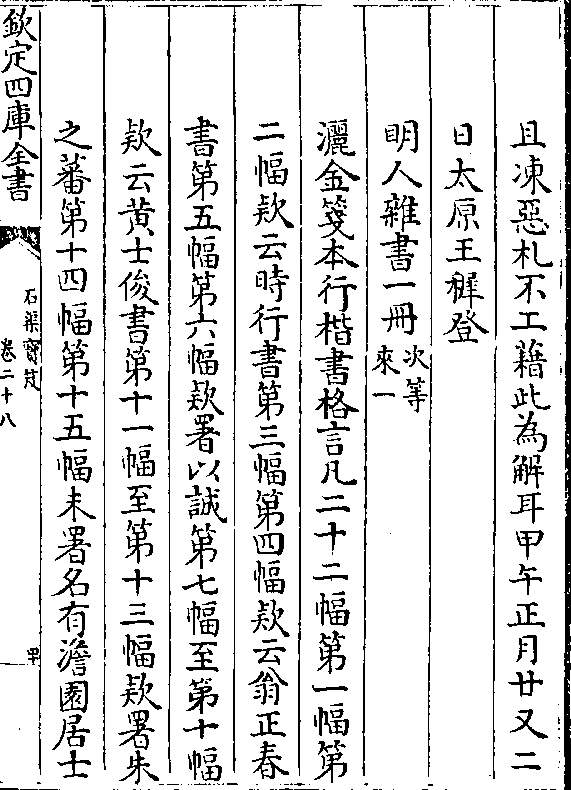 且凍惡札不工藉此為解耳甲午正月廿又二
日太原王穉登
明人雜書一冊次等
來一
灑金箋本行楷書格言凡二十二幅第一幅第
二幅欵云時行書第三幅第四幅欵云翁正春
書第五幅第六幅欵署以誠第七幅至第十幅
欵云黄士俊書第十一幅至第十三幅欵署朱
之蕃第十四幅第十五幅未署名有澹園居士
欽定四庫全書
石渠寶笈
卷二十八